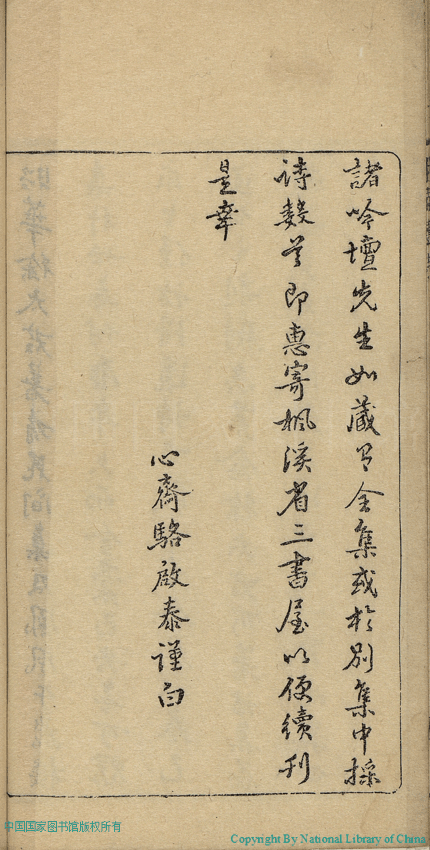 諸吟壇先生如藏有全集或於別集中採
詩數首即惠寄楓溪省三書屋以便續刊
是幸
心齋駱啟泰謹白
中国国家图书馆版权所有
Copyright By National Library of China